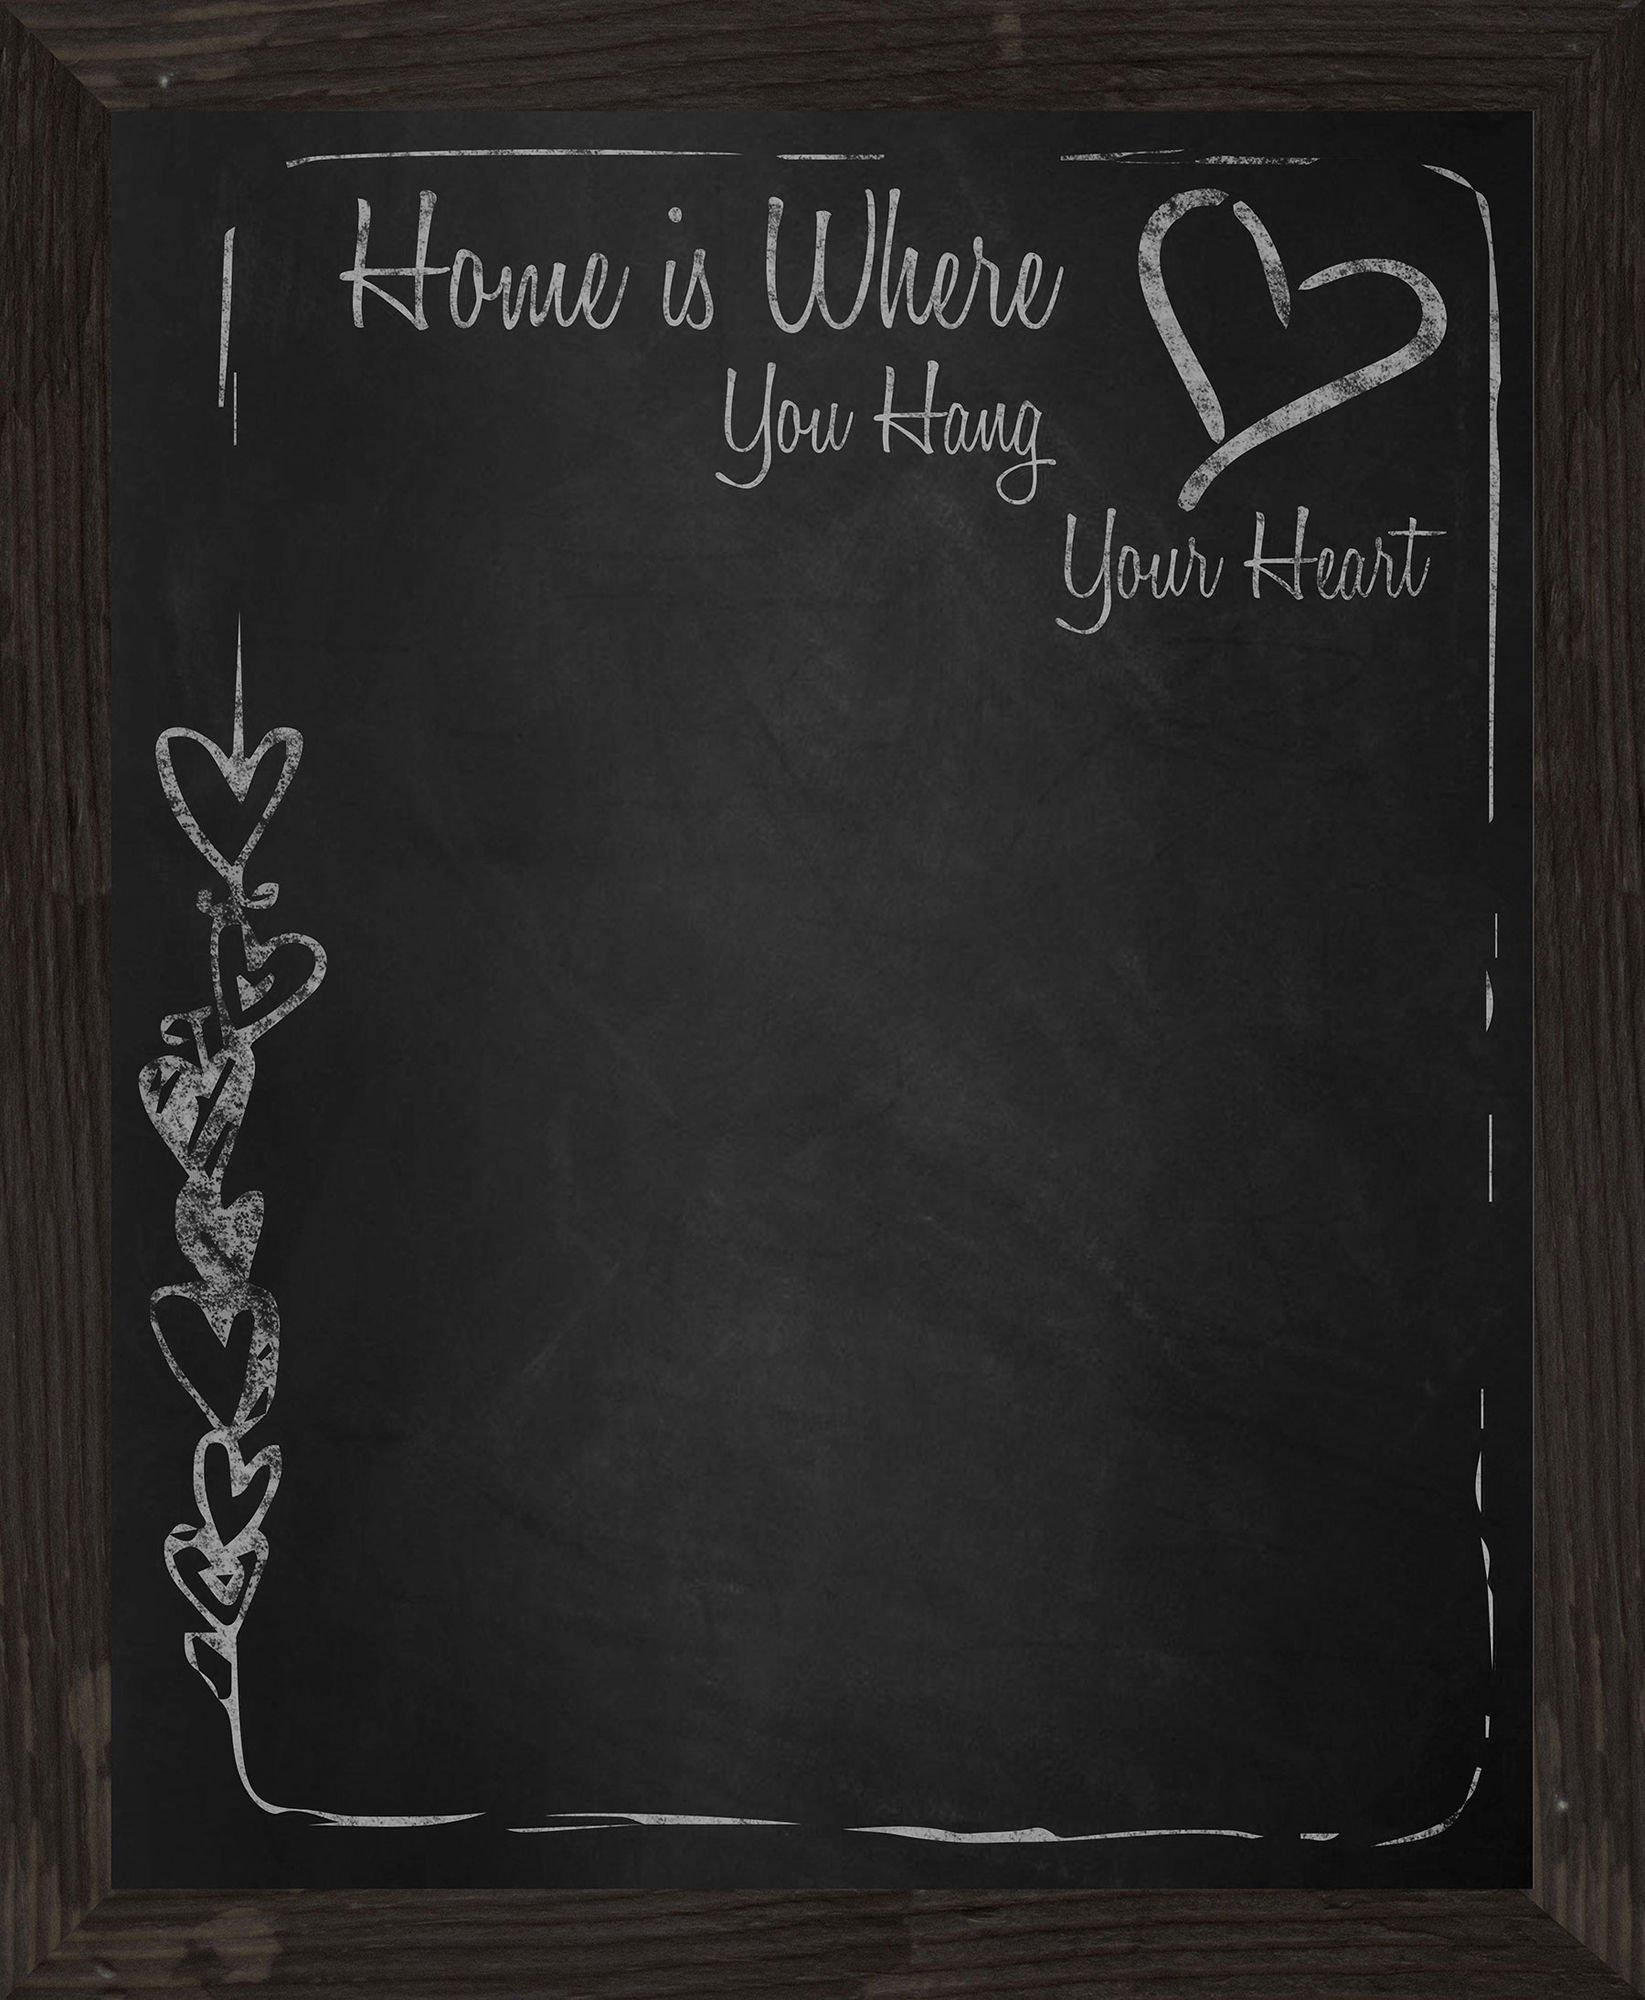 Home is Where
You Hang
Your Heart